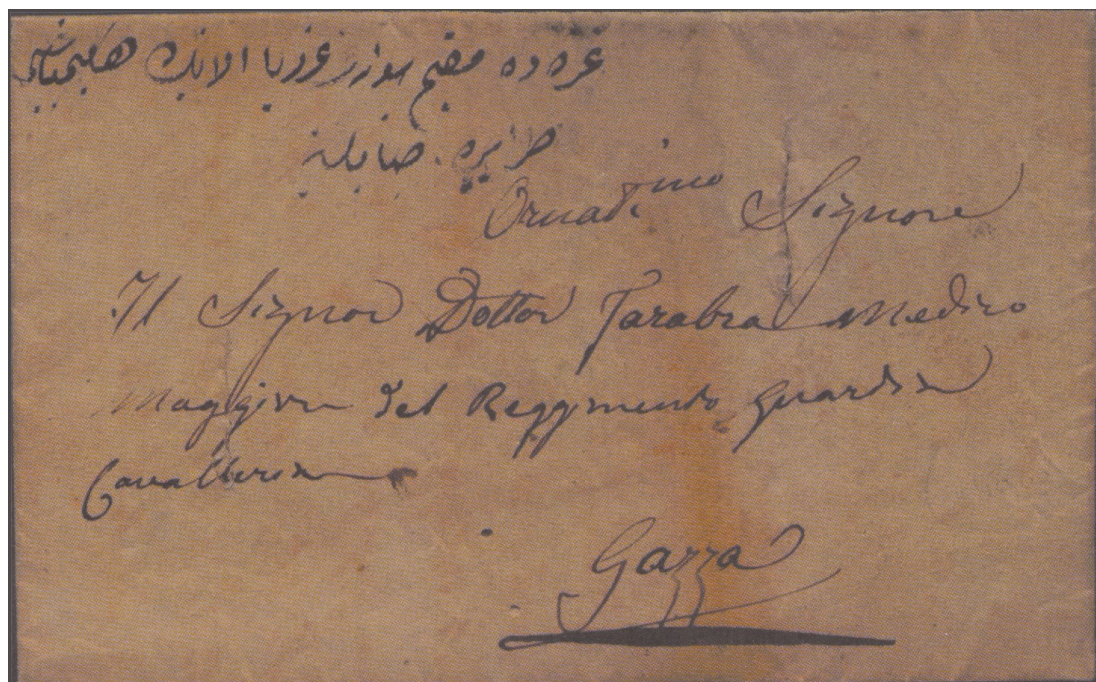 غزه ده مقيم سوارى غارديا الاينك حكيمباشى
طرابره جنابلرينه
Ornatimo Signore
Il Signor Dottor Tarabra Medico
Maggiore del Reggimento Guardia
Cavalleria
Gazza